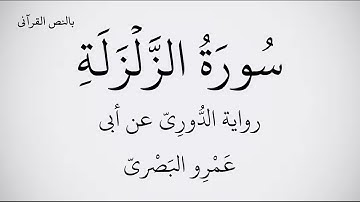 بالنص القرآنى
سُورَةُ الزَّلْزَلَةِ
رواية الدُّورِىّ عن أبى
عَمْرِو البَصْرِىّ